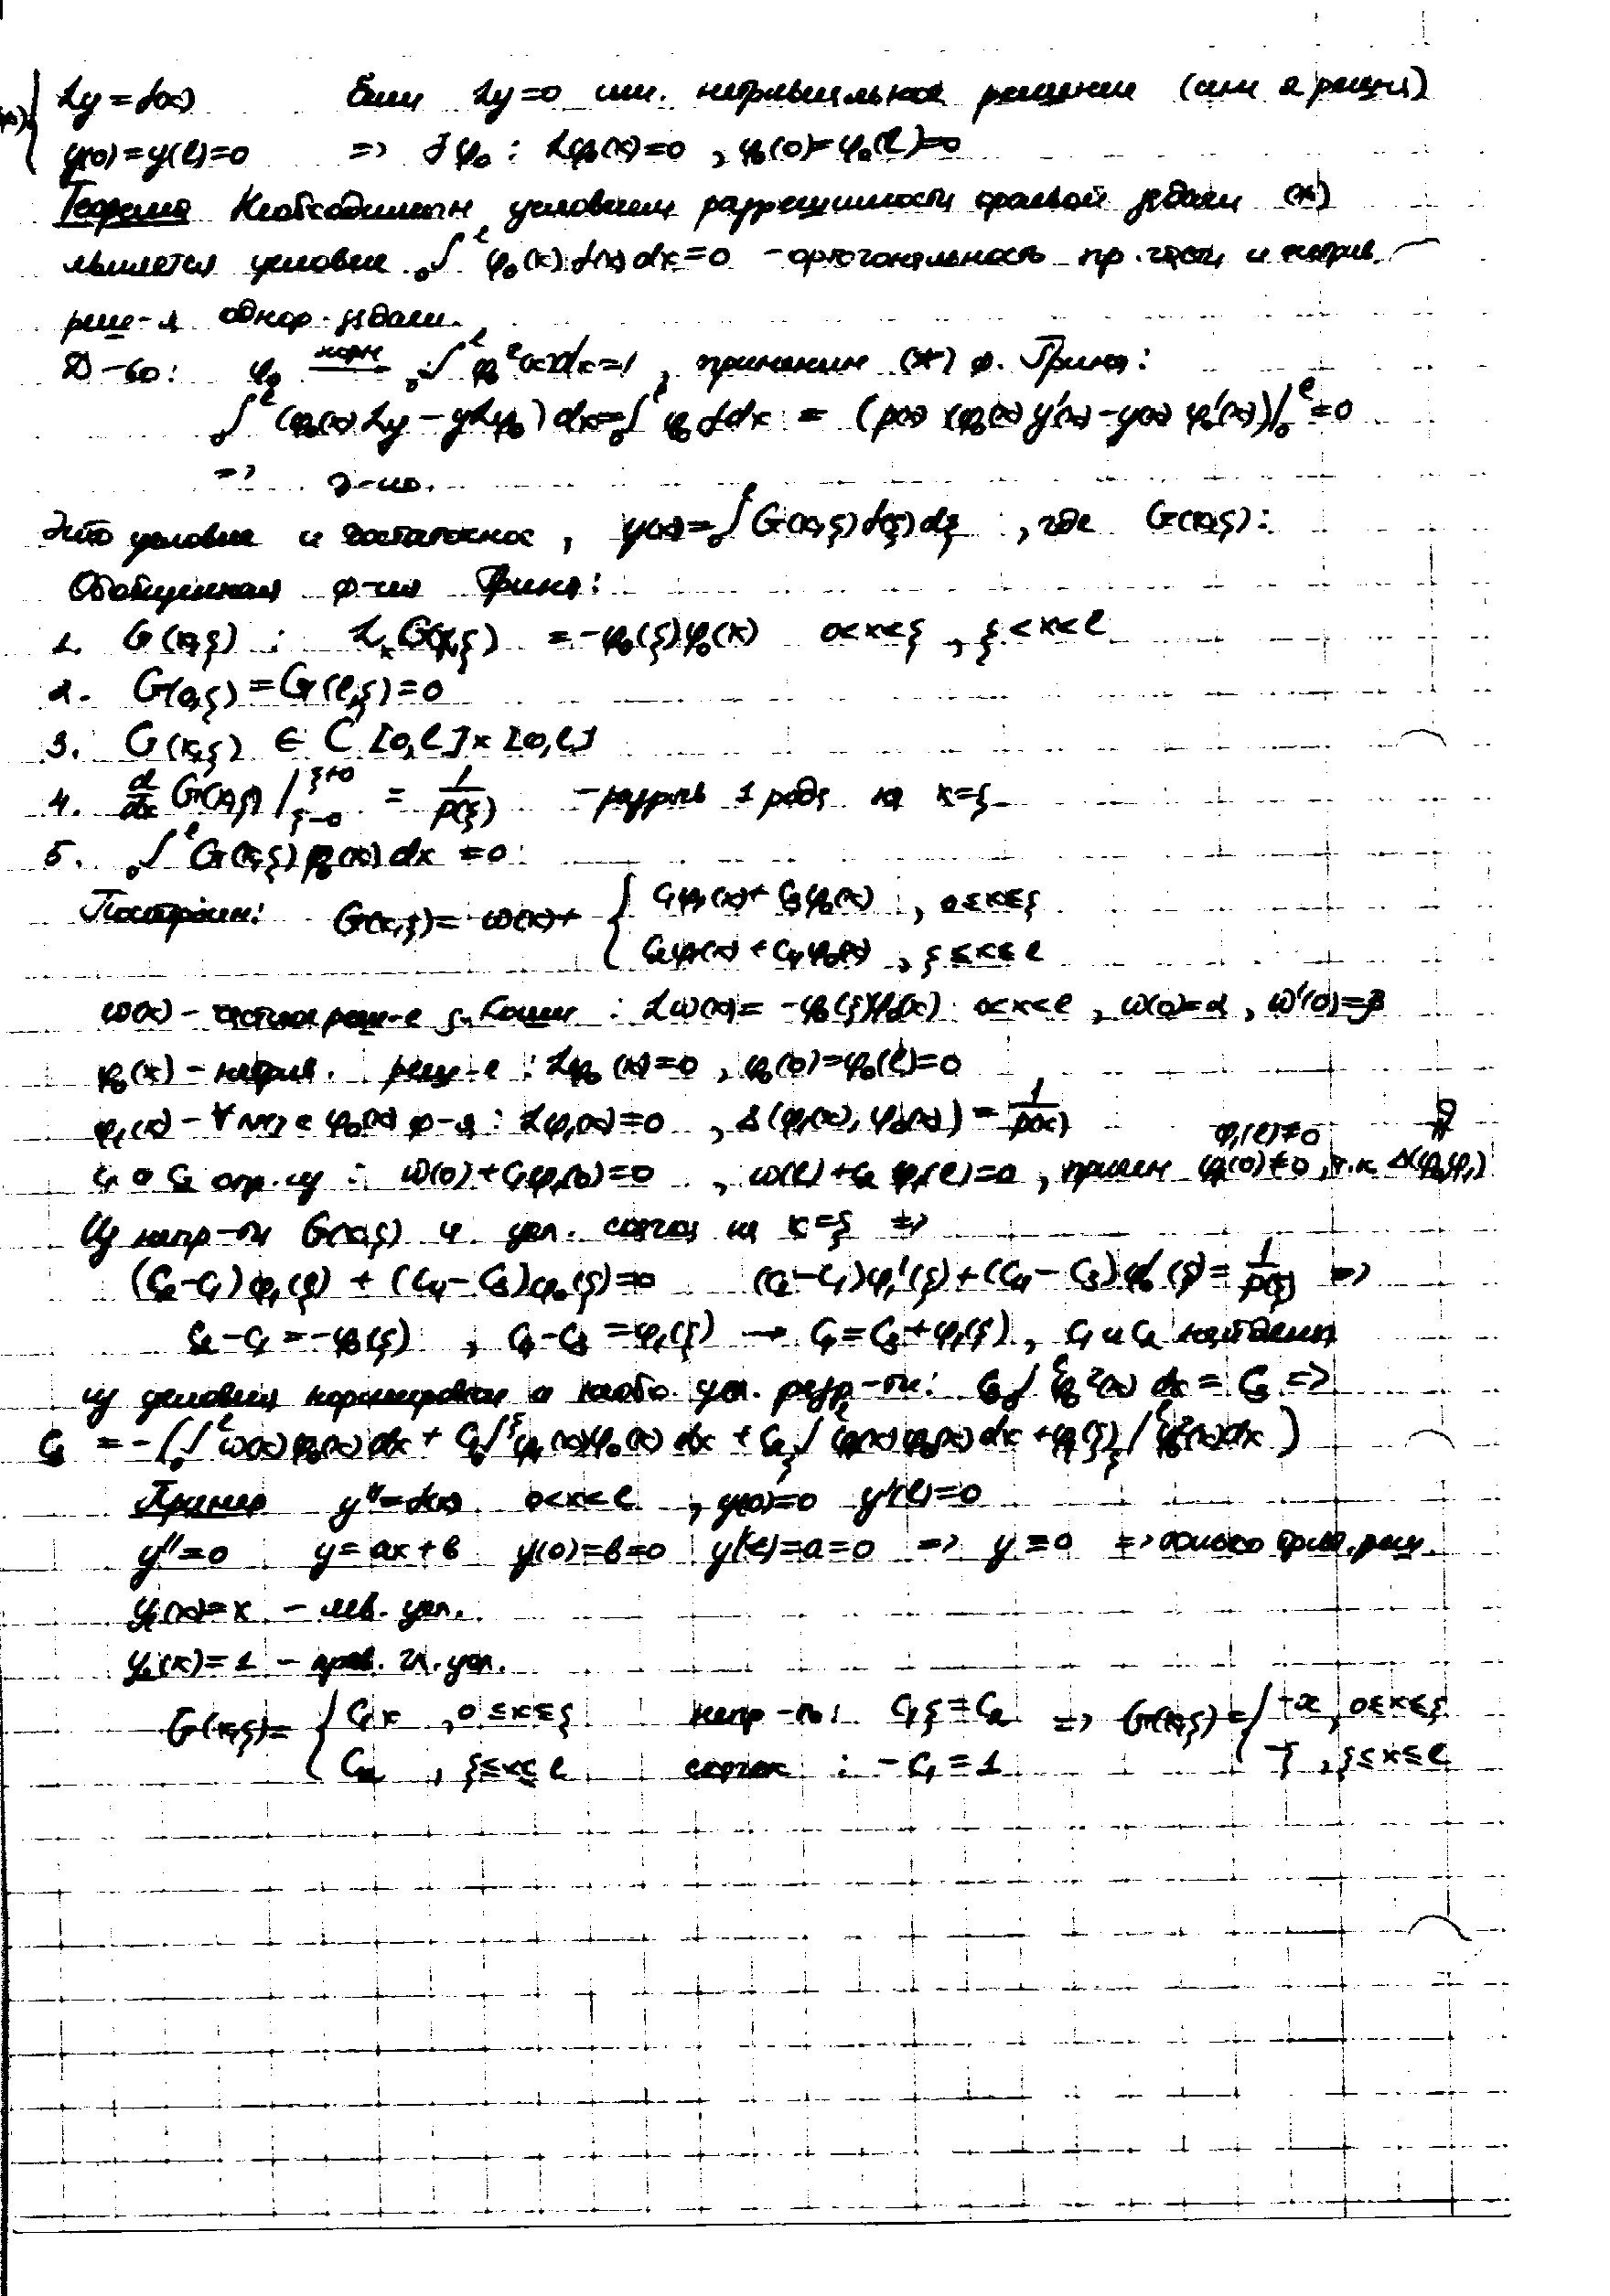 (*) { Ly = f(x)   Если Ly=0 им. нетривиальное решение (или 2 реш-я)
y(0)=y(l)=0   => ∃ φ₀ : Lφ₀(x)=0 , φ₀(0)=φ₀(l)=0
Теорема Необходимым условием разрешимости краевой задачи (*)
является условие ₀∫ˡ φ₀(x) f(x) dx=0 - ортогональность пр. части и нетрив.
реше-я однор. задачи.
Д-во: φ₀ норм ₀∫ˡ φ₀²(x)dx=1 , применим (*) ф. Грина:
₀∫ˡ (φ₀(x) Ly - yLφ₀) dx = ₀∫ˡ φ₀ f dx = (p(x) (φ₀(x) y'(x) - y(x) φ₀'(x))|₀ˡ =0
=> д-но.
Это условие и достаточное , y(x)= ₀∫ˡ G(x,ξ) f(ξ) dξ , где G(x,ξ):
Обобщенная ф-ия Грина:
1. G(x,ξ) : Lₓ G(x,ξ) = -φ₀(ξ) φ₀(x)   0<x<ξ , ξ<x<l
2. G(0,ξ) = G(l,ξ)=0
3. G(x,ξ) ∈ C [0,l]×[0,l]
4. d/dx G(x,ξ) |_{ξ-0}^{ξ+0} = 1/p(ξ)   - разрыв 1 рода на x=ξ
5. ₀∫ˡ G(x,ξ) φ₀(x) dx =0
Построим: G(x,ξ)= ω(x)+ { C₁φ₁(x)+C₃φ₀(x) , 0≤x≤ξ
C₂φ₁(x) + C₄φ₀(x) , ξ≤x≤l
ω(x) - частное реш-е з. Коши : Lω(x)= -φ₀(ξ)φ₀(x)   0<x<l , ω(0)=α , ω'(0)=β
φ₀(x) - нетрив. реш-е : Lφ₀(x)=0 , φ₀(0)=φ₀(l)=0
φ₁(x) - ∀ ЛНЗ с φ₀(x) ф-я : Lφ₁(x)=0 , Δ(φ₁(x), φ₀(x)) = 1/p(x)
φ₁(l)≠0
C₁ и C₂ опр. из : ω(0)+C₁φ₁(0)=0 , ω(l)+C₂ φ₁(l)=0 , причем φ₁(0)≠0 , т.к Δ(φ₀,φ₁)
Из непр-ти G(x,ξ) и усл. скачка на x=ξ =>
(C₂-C₁) φ₁(ξ) + (C₄-C₃)φ₀(ξ)=0   (C₂-C₁)φ₁'(ξ)+(C₄-C₃)φ₀'(ξ)= 1/p(ξ) =>
C₂-C₁=-φ₀(ξ) , C₄-C₃=φ₁(ξ) → C₄=C₃+φ₁(ξ) , C₁ и C₂ найдены
из условия нормировки и необх. усл. разр-ти: C₃ ₀∫ˡ φ₀²(x) dx = C₃ =>
C₃ = -(₀∫ˡ ω(x)φ₀(x)dx + C₁ ₀∫^ξ φ₁(x)φ₀(x) dx + C₂ ξ∫ˡ φ₁(x)φ₀(x)dx + φ₁(ξ) ξ∫ˡ φ₀²(x)dx )
Пример y''=f(x)   0<x<l , y(0)=0   y'(l)=0
y''=0   y=ax+b   y(0)=b=0   y'(l)=a=0 => y≡0 => только трив. реш.
y₁(x)=x - лев. усл.
y₂(x)=1 - прав. гл. усл.
G(x,ξ)= { C₁x , 0≤x≤ξ   непр-ть: C₁ξ=C₂ => G(x,ξ)= { -x , 0≤x≤ξ
C₂ , ξ≤x≤l   скачок : -C₁=1   -ξ , ξ≤x≤l